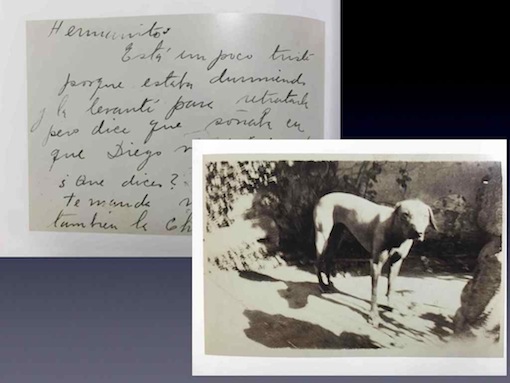 Hermanitos
Está un poco triste
porque estaba durmiendo
y la levanté para retratarla
pero dice que soñaba en
que Diego
¿Que dices?
te manda
también la Ch